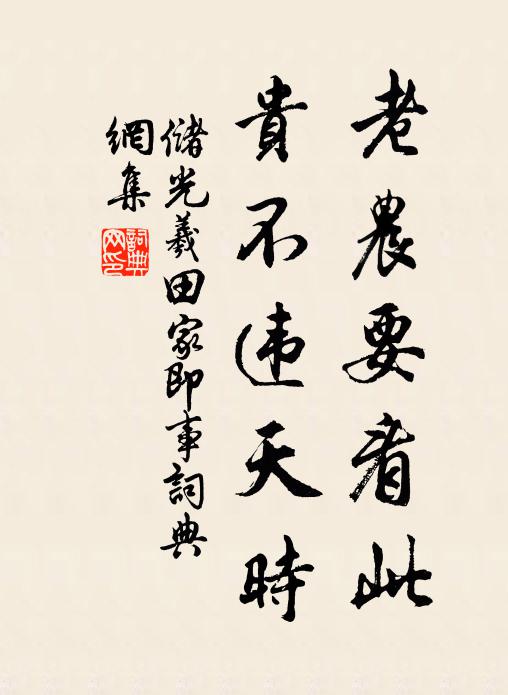 老農要看此
貴不违天時
儲光羲田家即事詞典
網集
詞典網印